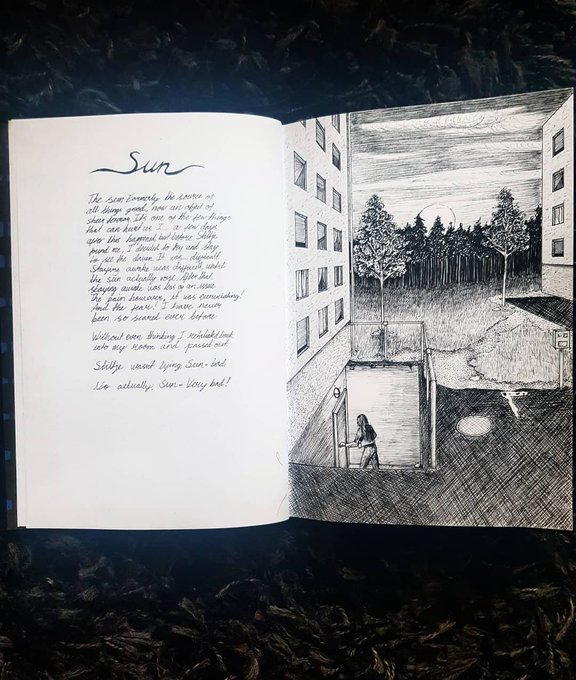 Sun
The sun. Formerly the source of
all things good, now an object of
sheer terror. It's one of the few things
that can hurt us I... a few days
after this happened but before Stiltze
found me, I decided to try and stay
to see the dawn. It was difficult
Staying awake was difficult, until
the sun actually rose. After that
staying awake was less of an issue.
The pain however, it was excruciating!
And the fear! I have never
been so scared ever before.
Without even thinking I retreated back
into my room and passed out.
Stiltze wasn't lying, Sun = bad.
No actually, Sun = Very bad!